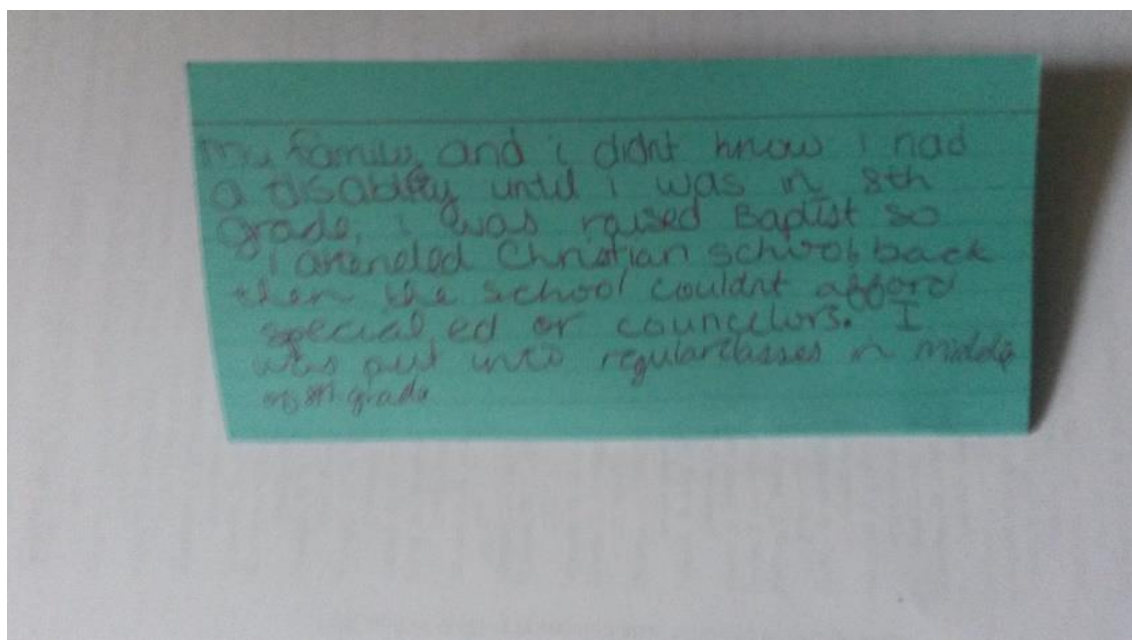 my family and i didnt know i had
a disability until i was in 8th
grade, i was raised Baptist so
i attended Christian school, back
then the school couldnt afford
special ed or councelors. I
was put into regular classes in middle
of 8th grade